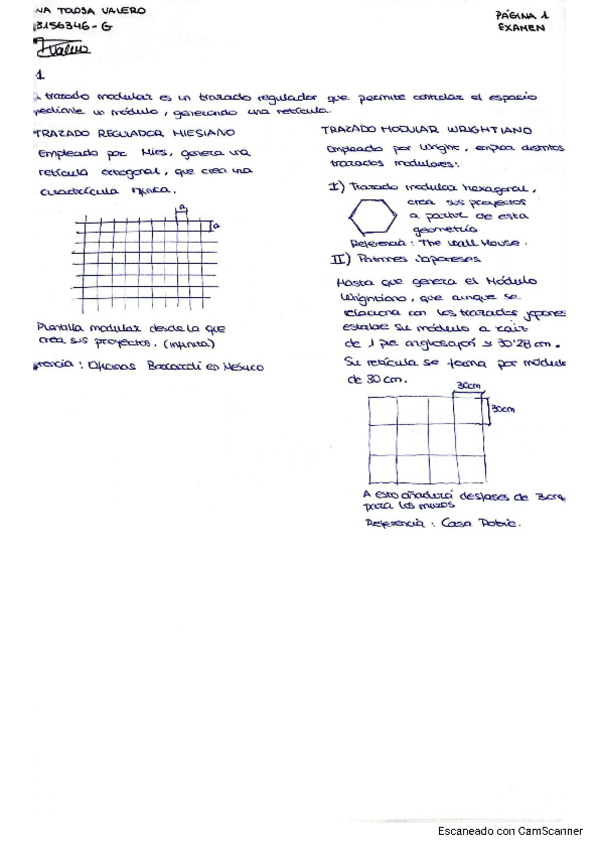 NA TOLOSA VALERO
8156346-G
PÁGINA 1
EXAMEN
Valero
1.
trazado modular es un trazado regulador que permite controlar el espacio
mediante un módulo, generando una retícula.
TRAZADO REGULADOR MIESIANO
Empleado por Mies, genera una
retícula octogonal, que crea una
cuadrícula única.
a
a
Plantilla modular desde la que
crea sus proyectos. (infinita)
erencia: Oficinas Baccardi en México
TRAZADO MODULAR WRIGHTIANO
Empleado por Wright, emplea distintos
trazados modulares:
I) Trazado modular hexagonal,
crea sus proyectos
a partir de esta
geometría
Referencia: The Wall House.
II) Patrones japoneses
Hasta que genera el Módulo
Wrightiano, que aunque se
relaciona con los trazados japones
estable su módulo a raíz
de 1 pie anglosajón ≃ 30'28 cm.
Su retícula se forma por módulos
de 30 cm.
30cm
30cm
A esto añadirá desfases de 3cm
para los muros
Referencia: Casa
Escaneado con CamScanner